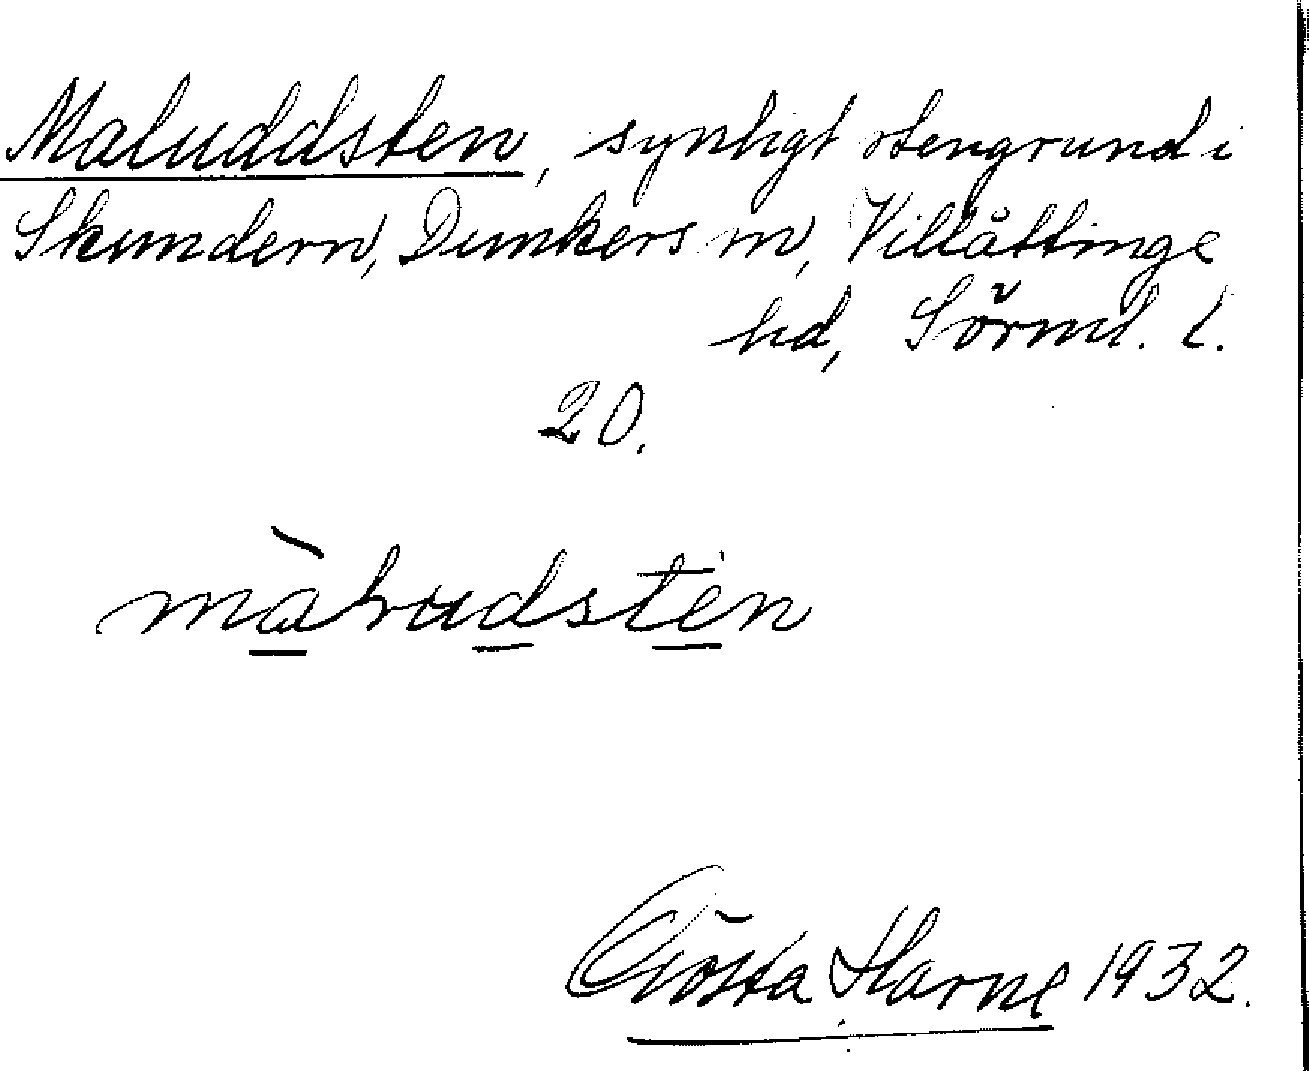 Maluddsten, synligt stengrund i
Skundern, Dunkers sn, Villåttinge
hd, Sörml. l.
20.
màludstén
Gösta Harne 1932.